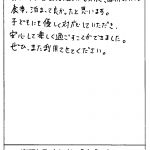 食事、泊まって良かったと思います。
子どもにも優しく対応していただき、
安心して楽しく過ごすことができました。
ぜひ、また利用させてください。